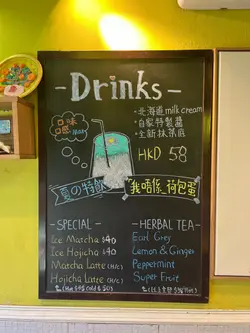 - Drinks -
・北海道 milk cream
・自家特製醬
・全新抹茶底
HKD 58
口味
口感
夏の特飲
我唔係荷包蛋
- SPECIAL -
Ice Matcha $40
Ice Hojicha $40
Matcha Latte (H/C)
Hojicha Latte (H/C)
- HERBAL TEA -
Earl Grey
Lemon & Ginger
Peppermint
Super Fruit